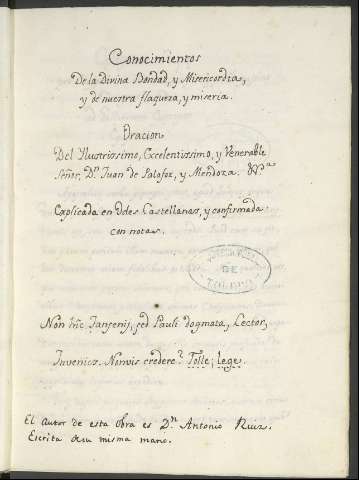 Conocimientos
De la Divina Bondad, y Misericordia,
y de nuestra flaqueza, y miseria.
Oracion
Del Ylustrissimo, Excelentissimo, y Venerable
Señor, Dn. Juan de Palafox, y Mendoza. &a.
Explicada en Odes Castellanas, y confirmada
con notas.
DE
TOLEDO
Non hîc Jansenij, sed Pauli dogmata, Lector,
Invenies. Nonvis credere? Tolle, lege.
El Autor de esta Obra es Dn. Antonio Ruiz.
Escrita de su misma mano.